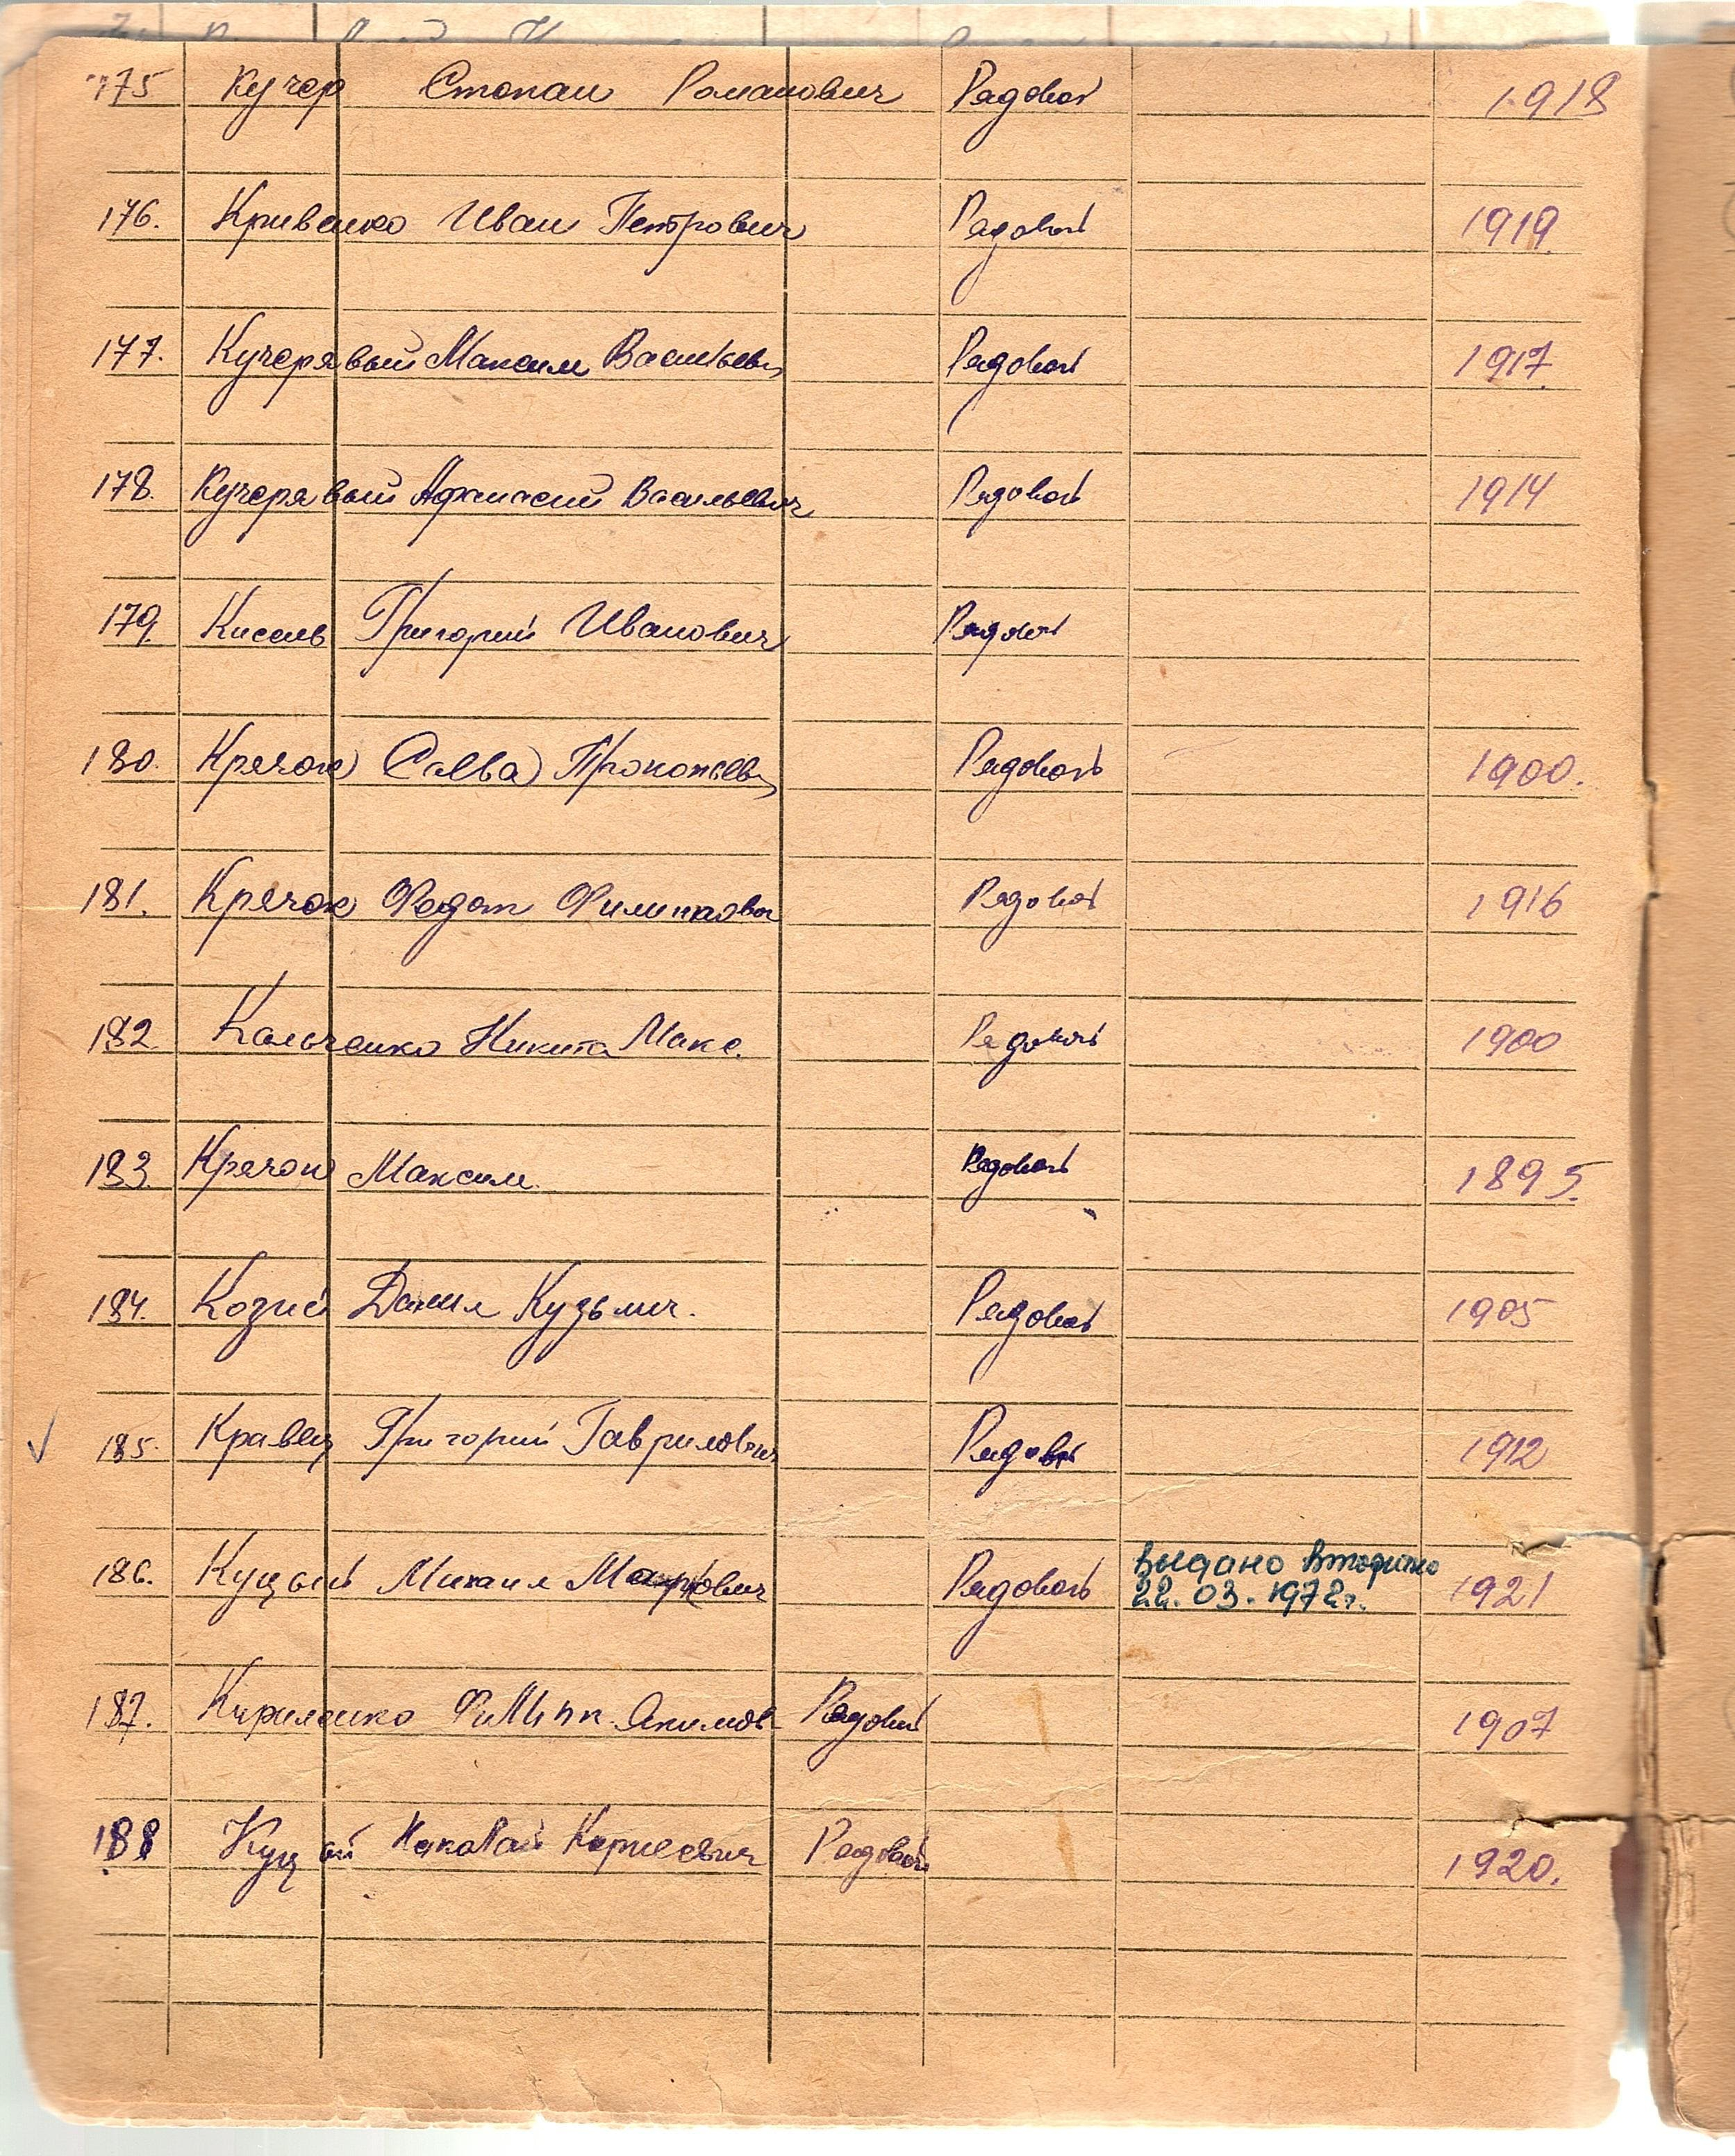 175 Кучер Степан Романович Рядовой 1918
176. Кривенко Иван Петрович Рядовой 1919.
177. Кучерявый Максим Васильев Рядовой 1917.
178. Кучерявый Афанасий Васильевич Рядовой 1914
179. Кисель Григорий Иванович Рядовой
180. Крячок Савва Прокопьев Рядовой 1900.
181. Крячок Федот Филиппович Рядовой 1916
182. Кальченко Никита Макс. Рядовой 1900
183. Крячок Максим Рядовой 1895.
184. Козий Данил Кузьмич. Рядовой 1905
185. Кравец Григорий Гаврилович Рядовой 1912
186. Куцый Михаил Маркович Рядовой выдано вторично 1921
22.03.1972г.
187. Кириленко Филипп Якимов Рядовой 1907
188 Куцый Николай Корнеевич Рядовой 1920.